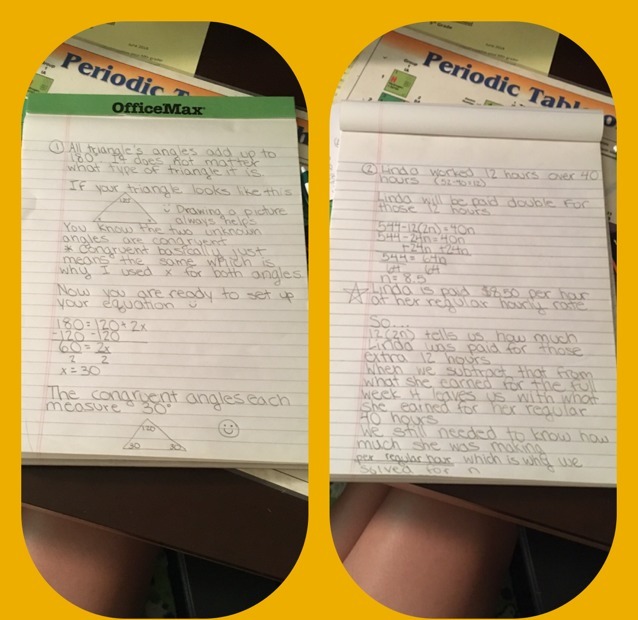 Periodic T
OfficeMax
① All triangle's angles add up to
180°. It does not matter
what type of triangle it is.
If your triangle looks like this
120
Drawing a picture
always helps
You know the two unknown
angles are congruent
* Congruent basically just
means the same which is
why I used x for both angles
Now you are ready to set up
your equation
180 = 120 + 2x
-120 -120
60 = 2x
2 2
x = 30
The congruent angles each
measure 30°
120
30 30
Periodic Tabl
② Linda worked 12 hours over 40
hours (52 total)
Linda will be paid double for
those 12 hours
544-12(2n)=40n
544-24n=40n
+24n +24n
544 = 64n
64 64
n = 8.5
Linda is paid $8.50 per hour
at her regular hourly rate
So...
12(2n) tells us how much
Linda was paid for those
extra 12 hours
When we subtract that from
what she earned for the full
week it leaves us with what
she earned for her regular
40 hours
We still needed to know how
much she was making
per regular hour which is why we
solved for n